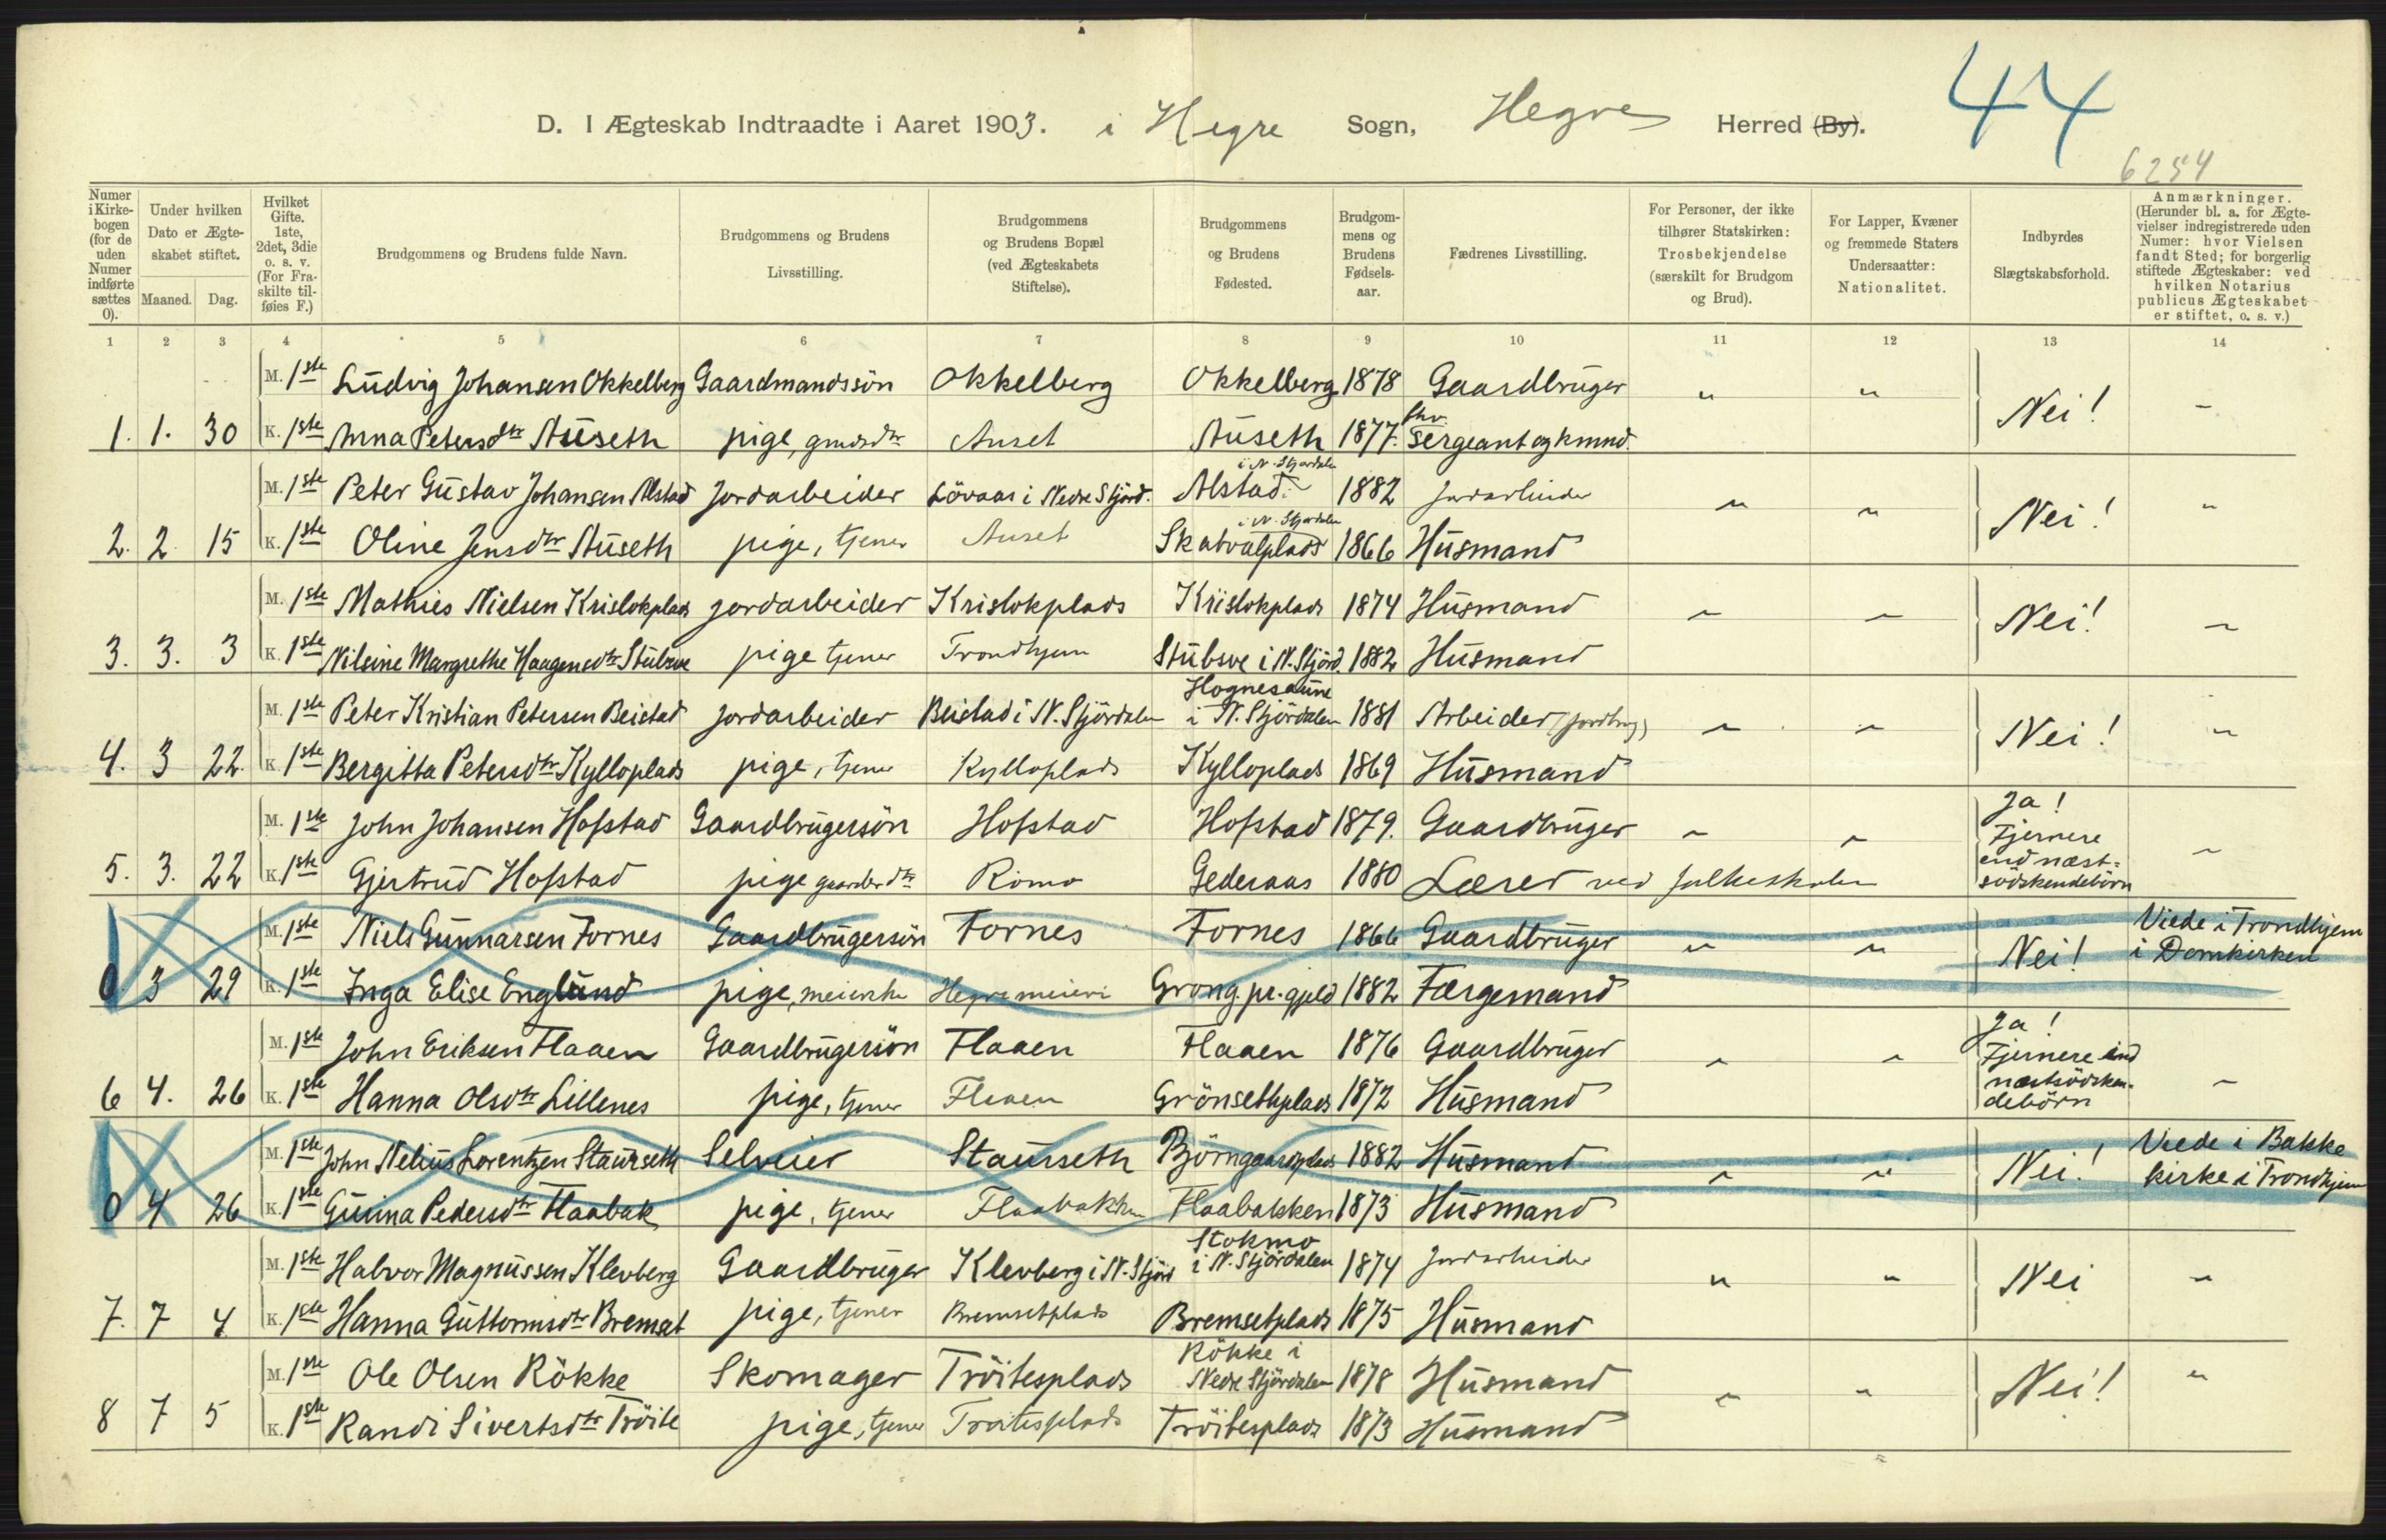 44
D. I Ægteskab Indtraadte i Aaret 1903. i Hegre Sogn, Hegre Herred (By).
6254
Numer i Kirkebogen (for de uden Numer indførte sættes 0). | Under hvilken Dato er Ægteskabet stiftet. Maaned. Dag. | Hvilket Gifte. 1ste, 2det, 3die o. s. v. (For Fraskilte tilføies F.) | Brudgommens og Brudens fulde Navn. | Brudgommens og Brudens Livsstilling. | Brudgommens og Brudens Bopæl (ved Ægteskabets Stiftelse). | Brudgommens og Brudens Fødested. | Brudgommens og Brudens Fødselsaar. | Fædrenes Livsstilling. | For Personer, der ikke tilhører Statskirken: Trosbekjendelse (særskilt for Brudgom og Brud). | For Lapper, Kvæner og fremmede Staters Undersaatter: Nationalitet. | Indbyrdes Slægtskabsforhold. | Anmærkninger. (Herunder bl. a. for Ægtevielser indregistrerede uden Numer: hvor Vielsen fandt Sted; for borgerlig stiftede Ægteskaber: ved hvilken Notarius publicus Ægteskabet er stiftet, o. s. v.)
1 2 3 4 5 6 7 8 9 10 11 12 13 14
M. 1ste Ludvig Johansen Okkelberg Gaardmandssön Okkelberg Okkelberg 1878 Gaardbruger " " Nei! -
1. 1. 30 K. 1ste Anna Petersdtr Auseth pige, gmdsdtr Auset Auseth 1877. fhv. Sergeant og kmnd.
M. 1ste Peter Gustav Johansen Alstad Jordarbeider Lövaas i Nedre Stjörd. Alstad i N. Stjørdalen 1882 Jordarbeider " " Nei! "
2. 2 15 K. 1ste Oline Jensdtr Auseth pige, tjener Auset Skatvalplads i N. Stjørdalen 1866 Husmand
M. 1ste Mathies Nielsen Krislokplads jordarbeider Krislokplads Krislokplads 1874 Husmand " " Nei! "
3. 3. 3 K. 1ste Nilsine Margrethe Haagensdtr Stubsve pige tjener Trondhjem Stubsve i N. Stjörd. 1882 Husmand
M. 1ste Peter Kristian Petersen Beistad jordarbeider Beistad i N. Stjördalen Hognesaune i N. Stjördalen 1881 Arbeider (jordbrug) " " Nei! "
4. 3 22. K. 1ste Bergitta Petersdtr Kylloplads pige, tjener Kylloplads Kylloplads 1869 Husmand
M. 1ste John Johansen Hofstad Gaardbrugersön Hofstad Hofstad 1879. Gaardbruger " " Ja! Fjernere end næstsödskendebörn "
5. 3. 22 K. 1ste Gjertrud Hofstad pige gaardbrdtr Romo Gederaas 1880 Lærer ved folkeskolen
M. 1ste Niels Gunnarsen Fornes Gaardbrugersön Fornes Fornes 1866 Gaardbruger " " Nei! Viede i Trondhjem i Domkirken
0 3 29 K. 1ste Inga Elise Englund pige, meierske Hegremeieri Grong pr.gjeld 1882 Færgemand
M. 1ste John Eriksen Flaaen Gaardbrugersön Flaaen Flaaen 1876 Gaardbruger " " Ja! Fjernere end næstsödskendebörn "
6 4. 26 K. 1ste Hanna Olsdtr Lillenes pige, tjener Flaaen Grönsethplads 1872 Husmand
M. 1ste John Nelius Lorentzen Staurseth Selveier Staurseth Björngaardplads 1882 Husmand " " Nei! Viede i Bakke kirke i Trondhjem
0 4 26 K. 1ste Gurina Pedersdtr Flaabak pige, tjener Flaabakken Flaabakken 1873 Husmand
M. 1ste Halvor Magnussen Klevberg Gaardbruger Klevberg i N. Stjörd Stokmo i N. Stjördalen 1874 Jordarbeider " " Nei "
7. 7 4 K. 1ste Hanna Guttormsdtr Bremset pige, tjener Bremsetplads Bremsetplads 1875 Husmand
M. 1ste Ole Olsen Rökke Skomager Tröitesplads Rökke i Nedre Stjördalen 1878 Husmand " " Nei! "
8 7 5 K. 1ste Randi Sivertsdtr Tröite pige, tjener Tröitesplads Tröitesplads 1873 Husmand